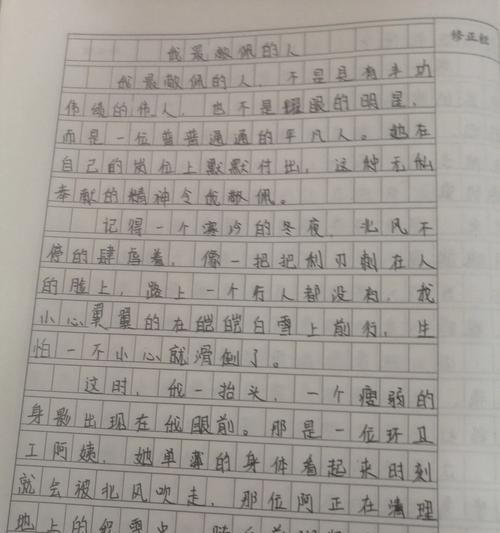 修正栏
我最敬佩的人
我最敬佩的人，不是具有丰功
伟绩的伟人，也不是耀眼的明星，
而是一位普普通通的平凡人。她在
自己的岗位上默默付出，这种无私
奉献的精神令我敬佩。
记得一个寒冷的冬夜，北风不
停的肆虐着，像一把把利刃刺在人
的脸上，路上一个行人都没有，我
小心翼翼的在皑皑白雪上前行，生
怕一不小心就滑倒了。
这时，我一抬头，一个瘦弱的
身影出现在我眼前。那是一位环卫
工阿姨，她单薄的身体看起来时刻
就会被北风吹走，那位阿正在清理
地上的积雪